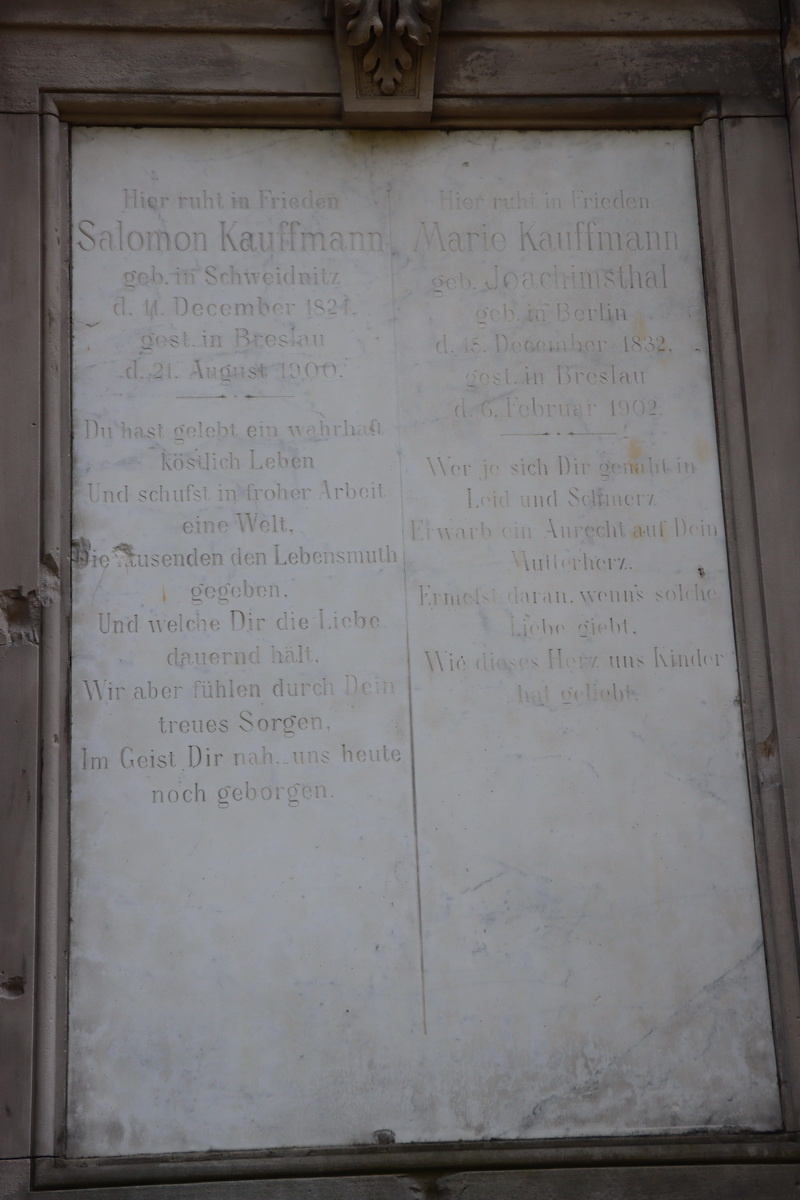 Hier ruht in Frieden
Salomon Kauffmann
geb. in Schweidnitz
d. 11. December 1824.
gest. in Breslau
d. 21. August 1900.
Du hast gelebt ein wahrhaft
köstlich Leben
Und schufst in froher Arbeit
eine Welt,
Die Tausenden den Lebensmuth
gegeben,
Und welche Dir die Liebe
dauernd hält.
Wir aber fühlen durch Dein
treues Sorgen,
Im Geist Dir nah, uns heute
noch geborgen.
Hier ruht in Frieden
Marie Kauffmann
geb. Joachimsthal
geb. in Berlin
d. 15. December 1832.
gest. in Breslau
d. 6. Februar 1902.
Wer je sich Dir genaht in
Leid und Schmerz
Erwarb ein Anrecht auf Dein
Mutterherz.
Ermeſst daran, wenn's solche
Liebe giebt,
Wie dieses Herz uns Kinder
hat geliebt.